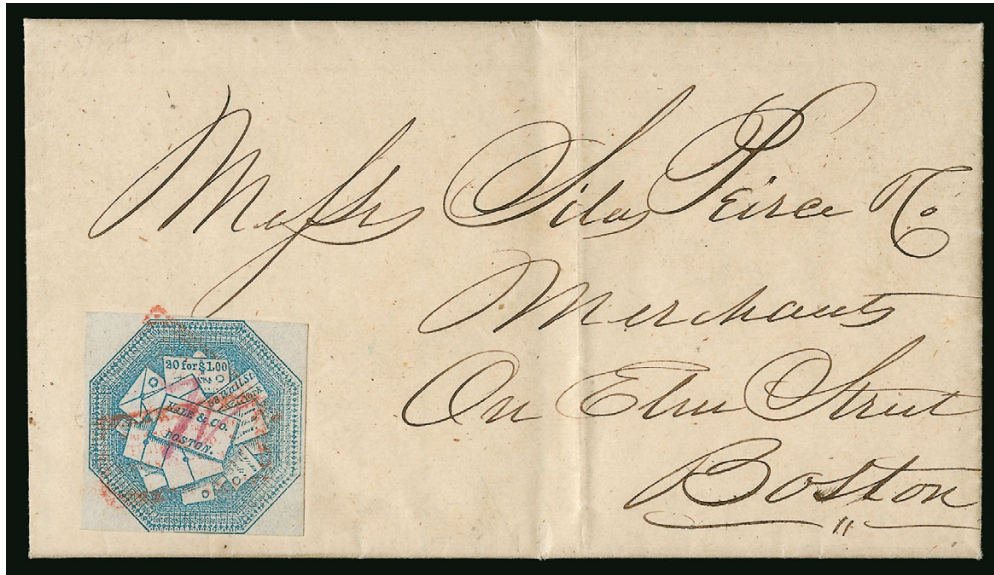 Messrs Silas Peirce & Co
Merchants
On Elm Street
Boston
20 for $1.00
HALE & Co.
BOSTON.